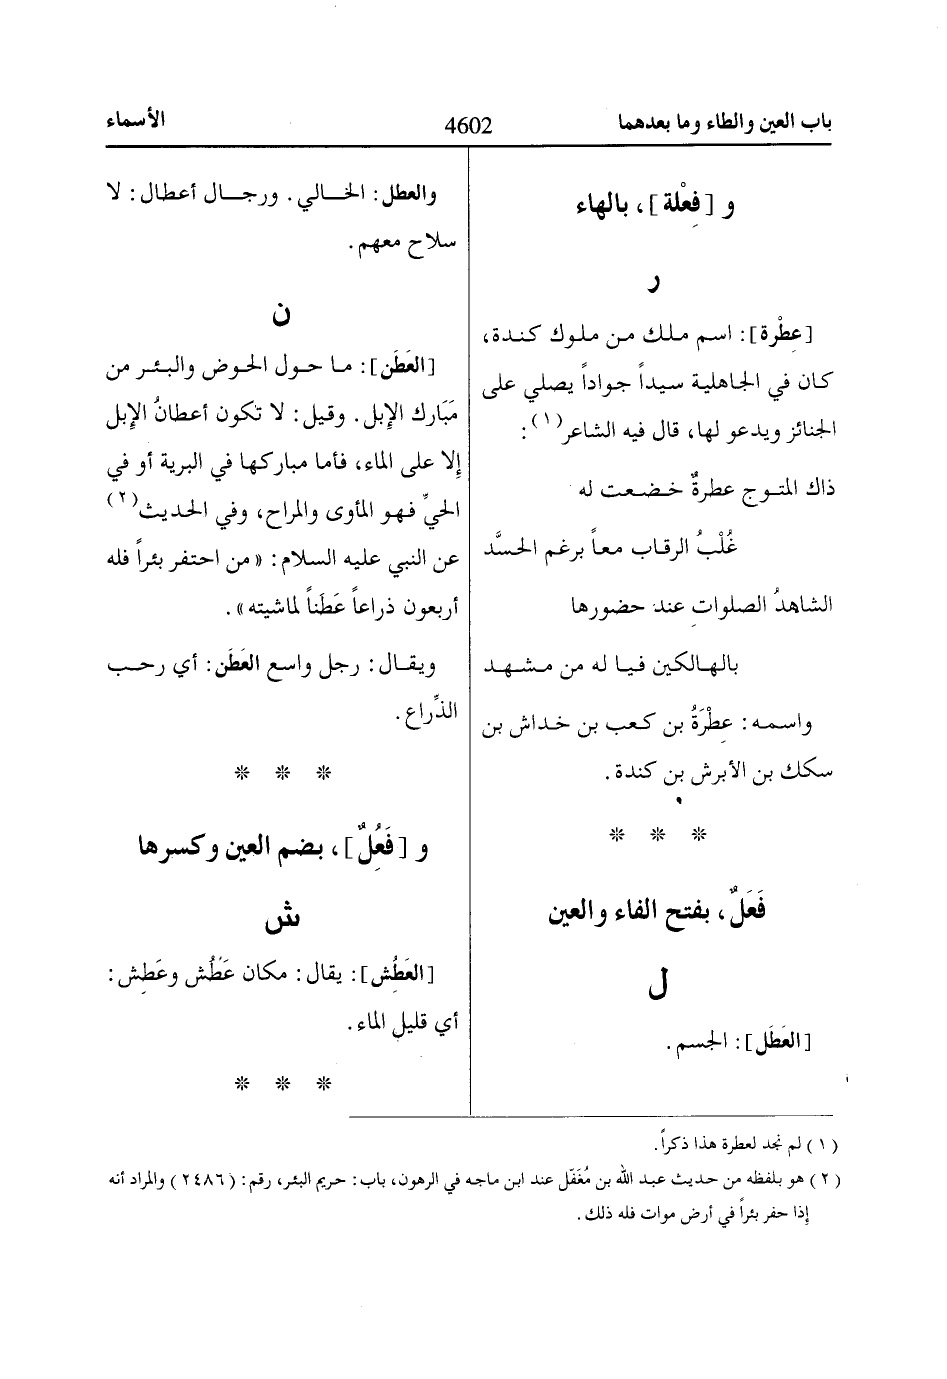 باب العين والطاء وما بعدهما
4602
الأسماء
و [فِعْلة]، بالهاء
ر
[عِطْرة]: اسم ملك من ملوك كندة،
كان في الجاهلية سيداً جواداً يصلي على
الجنائز ويدعو لها، قال فيه الشاعر(١):
ذاك المتوج عطرةٌ خضعت له
غُلْبُ الرقاب معاً برغم الحسَّد
الشاهدُ الصلوات عند حضورها
بالهالكين فيا له من مشهد
واسمه: عِطْرَةُ بن كعب بن خداش بن
سكك بن الأبرش بن كندة.
* * *
فَعَلٌ، بفتح الفاء والعين
ل
[العَطَل]: الجسم.
والعطل: الخالي. ورجال أعطال: لا
سلاح معهم.
ن
[العَطَن]: ما حول الحوض والبئر من
مَبَارك الإبل. وقيل: لا تكون أعطانُ الإبل
إلا على الماء، فأما مباركها في البرية أو في
الحيِّ فهو المأوى والمراح، وفي الحديث(٢)
عن النبي عليه السلام: «من احتفر بئراً فله
أربعون ذراعاً عَطَناً لماشيته».
ويقال: رجل واسع العَطَن: أي رحب
الذِّراع.
* * *
و [فَعُِلٌ]، بضم العين وكسرها
ش
[العَطُِش]: يقال: مكان عَطُش وعَطِش:
أي قليل الماء.
* * *
(١) لم نجد لعطرة هذا ذكراً.
(٢) هو بلفظه من حديث عبد الله بن مُغَفّل عند ابن ماجه في الرهون، باب: حريم البئر، رقم: (٢٤٨٦) والمراد أنه
إذا حفر بئراً في أرض موات فله ذلك.